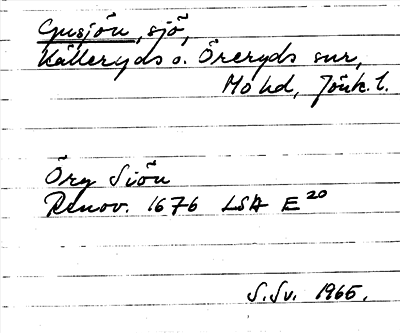 Gusjön, sjö,
Källeryds o. Öreryds snr,
Mo hd, Jönk. l.
Öry Siön
Renov. 1676 LSA E 20
S. Sv. 1965.